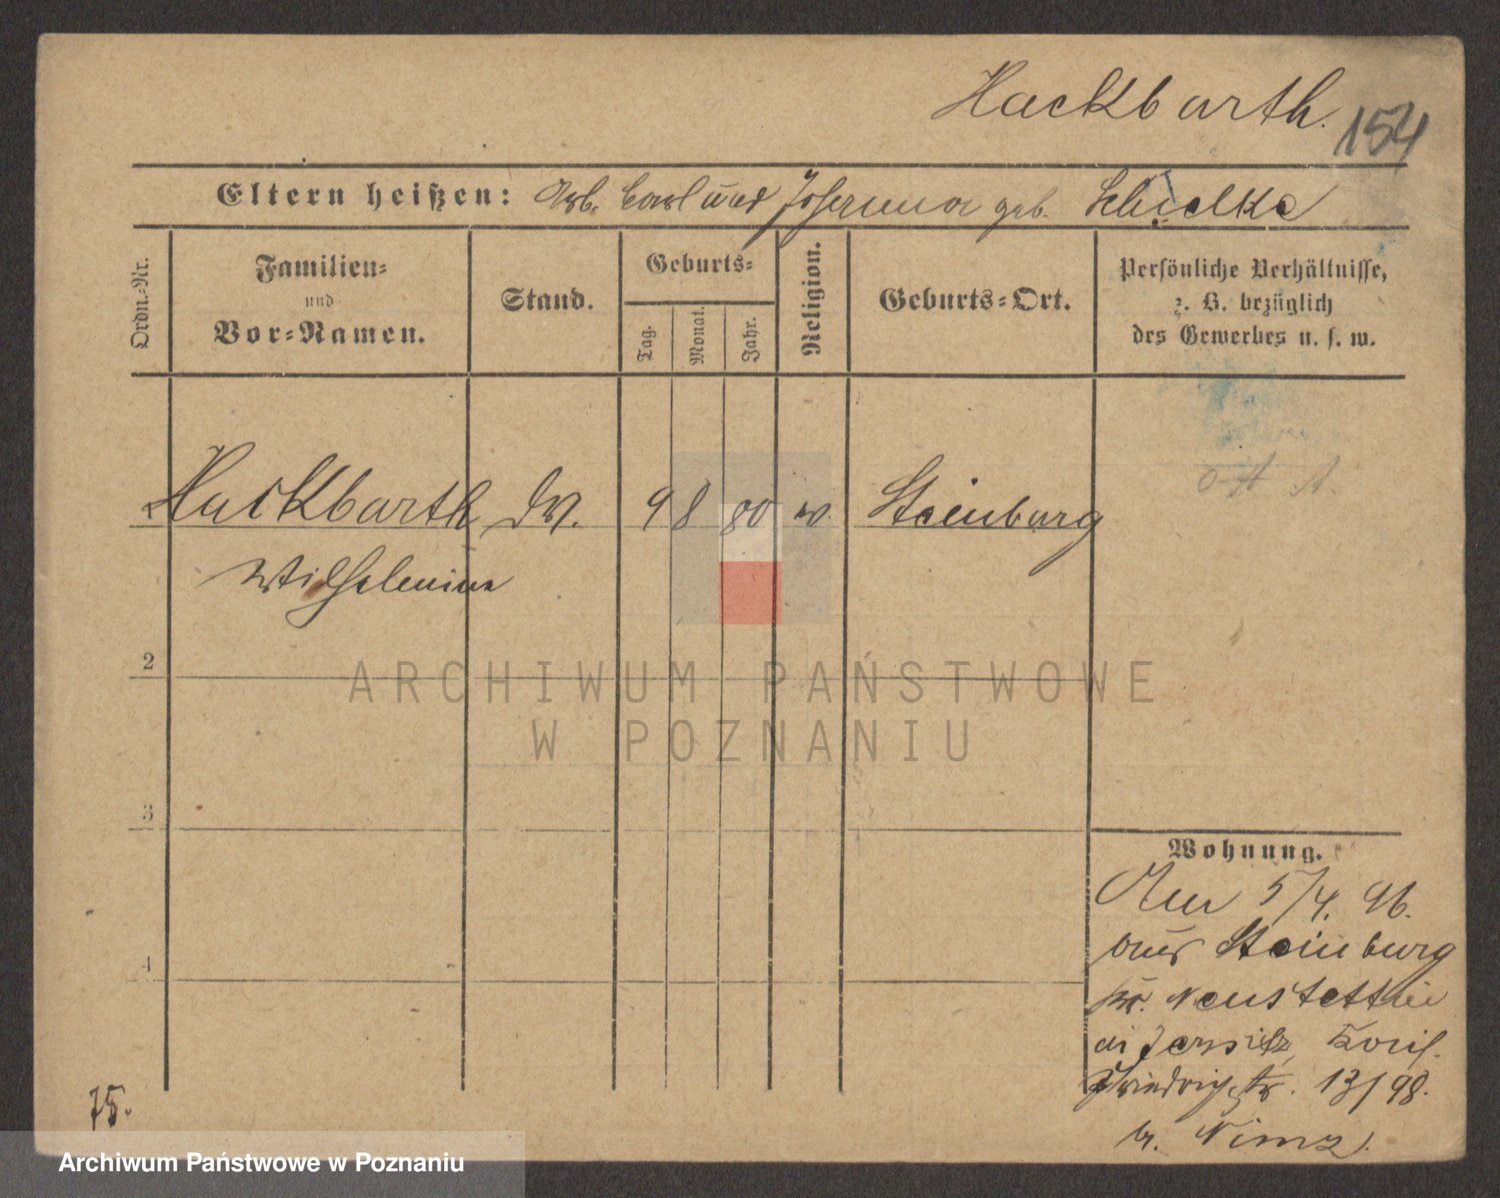 Hackbarth.
154
Eltern heißen: Arb. Carl und Johanna geb. Schielke
Ordn.-Nr.
Familien-
und
Vor-Namen.
Stand.
Geburts-
Tag.
Monat.
Jahr.
Religion.
Geburts-Ort.
Persönliche Verhältnisse,
z. B. bezüglich
des Gewerbes u. s. w.
Hackbarth 9 8 80 Steinburg
Wilhelmine
2
ARCHIWUM PAŃSTWOWE
W POZNANIU
3
4
Wohnung.
5/4. 96.
aus Steinburg
Kr. Neustettin
in Jersitz,
Friedrichstr. 13/98.
b. Nimz.
75.
Archiwum Państwowe w Poznaniu